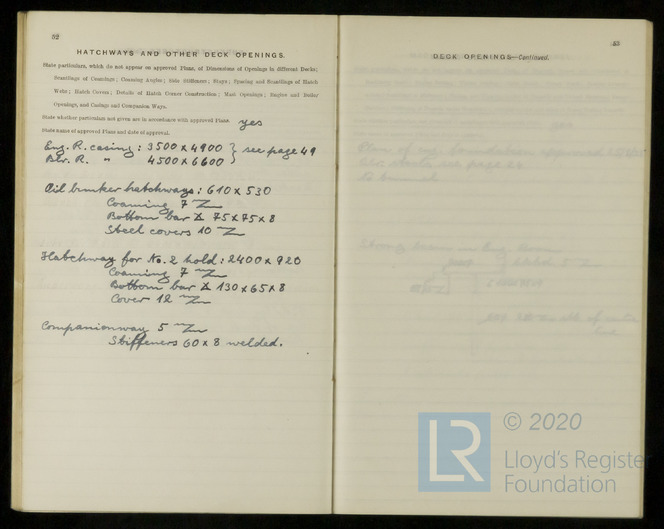 52
HATCHWAYS AND OTHER DECK OPENINGS.
State particulars, which do not appear on approved Plans, of Dimensions of Openings in different Decks;
Scantlings of Coamings; Coaming Angles; Side Stiffeners; Stays; Spacing and Scantlings of Hatch
Webs; Hatch Covers; Details of Hatch Corner Construction; Mast Openings; Engine and Boiler
Openings, and Casings and Companion Ways.
State whether particulars not given are in accordance with approved Plans. yes
State name of approved Plans and date of approval.
Eng. R. casing: 3500 x 4900 } see page 49
Blr. R. " 4500 x 6600
Oil bunker hatchways: 610 x 530
Coaming 7 m/m
Bottom bar 75 x 75 x 8
Steel covers 10 m/m
Hatchway for No. 2 hold: 2400 x 920
Coaming 7 m/m
Bottom bar 130 x 65 x 8
Cover 12 m/m
Companionway 5 m/m
Stiffeners 60 x 8 welded.
53
DECK OPENINGS—Continued.
LR
© 2020
Lloyd's Register
Foundation